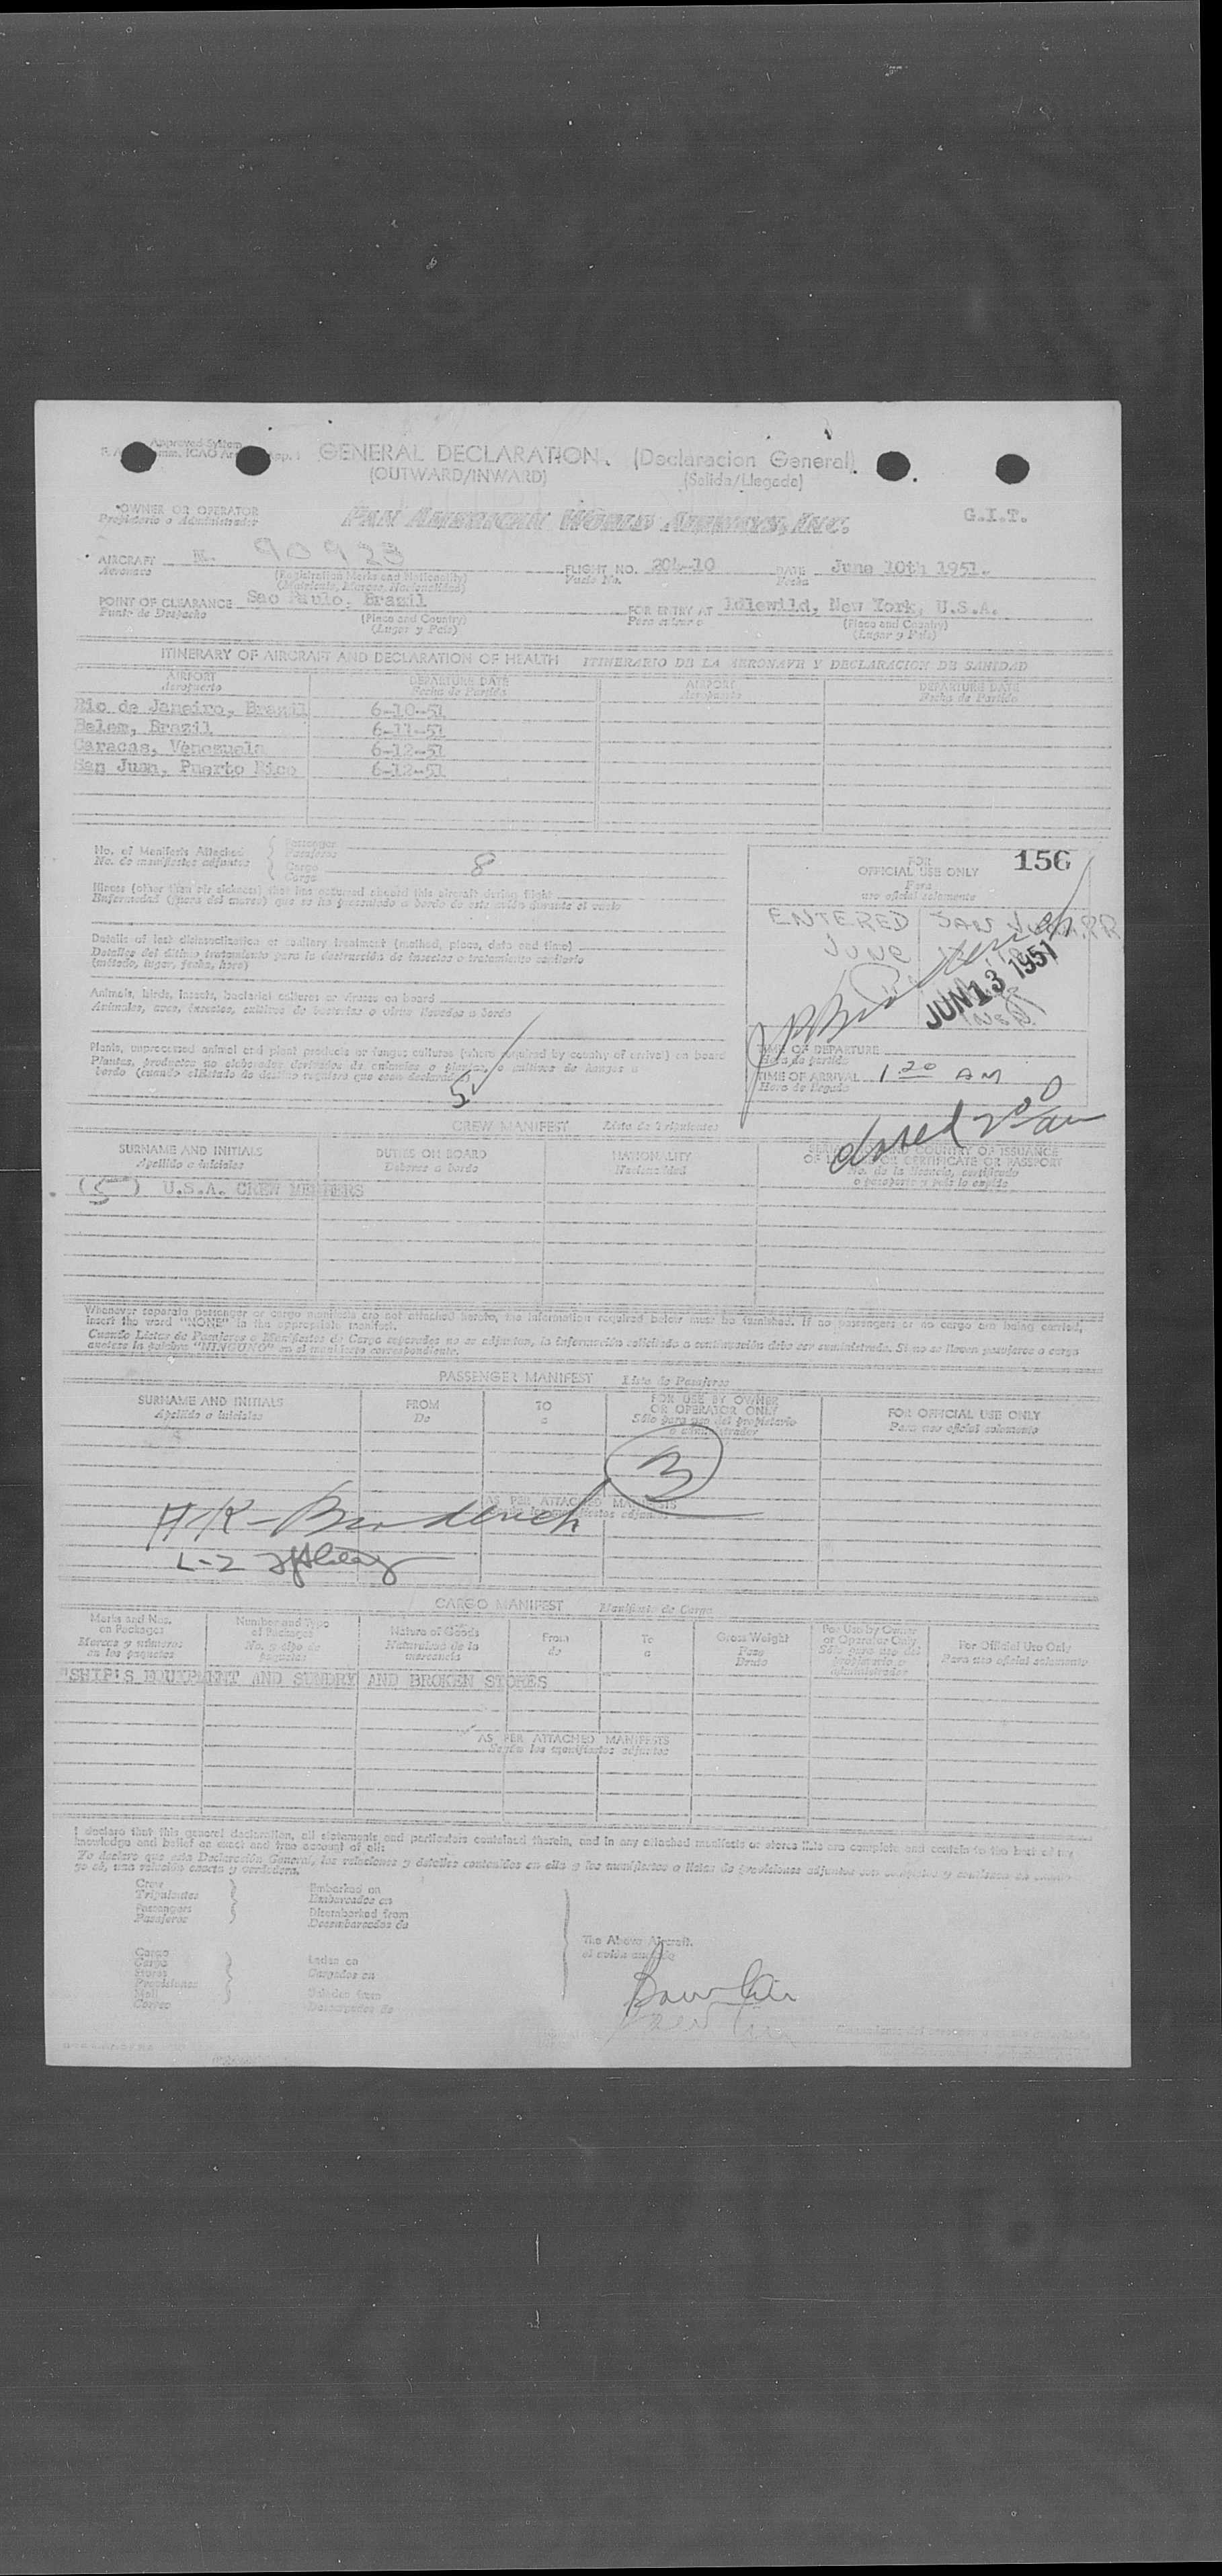 Approved System
GENERAL DECLARATION. (Declaracion General)
(OUTWARD/INWARD) (Salida/Llegada)
OWNER OR OPERATOR PAN AMERICAN WORLD AIRWAYS, INC. G.I.T.
Propietario o Administrador
AIRCRAFT N- 90923 FLIGHT NO. 204-10 DATE June 10th 1951.
Aeronave (Registration Marks and Nationality) Vuelo No. Fecha
POINT OF CLEARANCE Sao Paulo, Brazil FOR ENTRY AT Idlewild, New York, U.S.A.
Punto de Despacho (Place and Country) Para entrar a (Place and Country)
(Lugar y Pais) (Lugar y Pais)
ITINERARY OF AIRCRAFT AND DECLARATION OF HEALTH ITINERARIO DE LA AERONAVE Y DECLARACION DE SANIDAD
AIRPORT DEPARTURE DATE AIRPORT DEPARTURE DATE
Aeropuerto Fecha de Partida Aeropuerto Fecha de Partida
Rio de Janeiro, Brazil 6-10-51
Belem, Brazil 6-11-51
Caracas, Venezuela 6-12-51
San Juan, Puerto Rico 6-12-51
No. of Manifests Attached Passenger
No. de manifiestos adjuntos Pasajeros
Cargo 8
Cargo
156
FOR
OFFICIAL USE ONLY
Para
uso oficial solamente
Illness (other than air sickness) that has occurred aboard this aircraft during flight
Enfermedad (fuera del mareo) que se ha presentado a bordo de este avión durante el vuelo
ENTERED SAN JUAN, P.R.
JUNE
JUN 13 1951
Details of last disinsectization or sanitary treatment (method, place, date and time)
Detalles del último tratamiento para la destrucción de insectos o tratamiento sanitario
(método, lugar, fecha, hora)
Animals, birds, insects, bacterial cultures or viruses on board
Animales, aves, insectos, cultivos de bacterias o virus llevados a bordo
Plants, unprocessed animal and plant products or fungus cultures (where required by country of arrival) on board
5
TIME OF DEPARTURE
Hora de partida
TIME OF ARRIVAL 1 20 AM
Hora de llegada
CREW MANIFEST Lista de Tripulantes
SURNAME AND INITIALS DUTIES ON BOARD NATIONALITY
Apellido e iniciales Deberes a bordo Nacionalidad
COUNTRY OF ISSUANCE
CERTIFICATE OR PASSPORT
(5) U.S.A. CREW MEMBERS
Whenever separate passenger or cargo manifests are not attached hereto, the information required below must be furnished. If no passengers or no cargo are being carried,
insert the word "NONE" in the appropriate manifest.
Cuando Listas de Pasajeros o Manifiestos de Cargo separados no se adjuntan, la información solicitada a continuación debe ser suministrada. Si no se llevan pasajeros o carga
anótese la palabra "NINGUNO" en el manifiesto correspondiente.
PASSENGER MANIFEST Lista de Pasajeros
SURNAME AND INITIALS FROM TO FOR USE BY OWNER OR OPERATOR ONLY FOR OFFICIAL USE ONLY
Apellido e iniciales De a Sólo para uso del propietario o administrador Para uso oficial solamente
3
AS PER ATTACHED MANIFESTS
L-2
CARGO MANIFEST Manifiesto de Carga
Marks and Nos. on Packages Number and Type of Packages Nature of Goods From To Gross Weight For Use by Owner or Operator Only For Official Use Only
Marcas y números en los paquetes No. y tipo de paquetes Naturaleza de la mercancía de a Peso Bruto Sólo para uso del propietario o administrador Para uso oficial solamente
"SHIP'S EQUIPMENT AND SUNDRY AND BROKEN STORES
AS PER ATTACHED MANIFESTS
Según los manifiestos adjuntos
I declare that this general declaration, all statements and particulars contained therein, and in any attached manifests or stores lists are complete and contain to the best of my
knowledge and belief an exact and true account of all:
Crew Embarked on
Tripulantes Embarcados en
Passengers Disembarked from
Pasajeros Desembarcados de
The Above Aircraft.
Cargo Laden on
Carga Cargados en
Stores
Provisiones
Mail Unladen from
Correo Descargados de